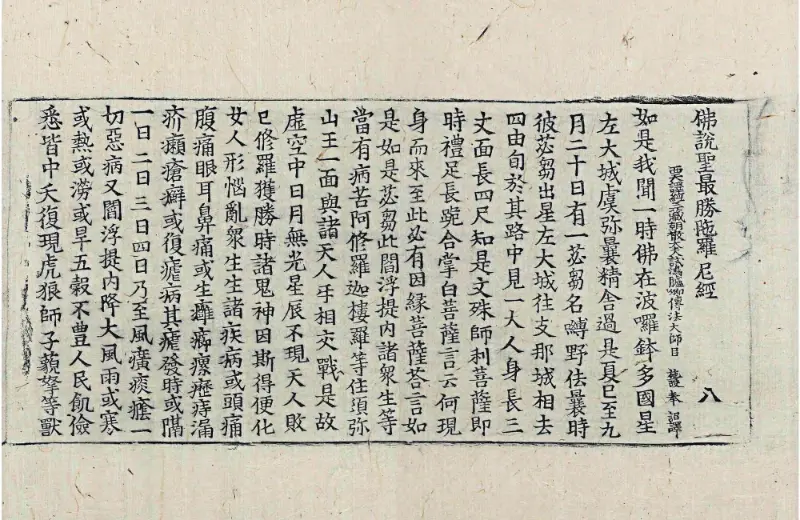 佛説聖最勝陁羅尼經 八
西天譯經三藏朝散大夫試鴻臚卿傳法大師臣 施護 奉 詔譯
如是我聞一時佛在波囉鉢多國星
左大城虞弥曩精舍過是夏已至九
月二十日有一苾芻名嚩野佉曩時
彼苾芻出星左大城往支那城相去
四由旬於其路中見一大人身長三
丈面長四尺知是文殊師利菩薩即
時禮足長跪合掌白菩薩言云何現
身而來至此必有因緣菩薩荅言如
是如是苾芻此閻浮提内諸衆生等
當有病苦阿修羅迦樓羅等住須弥
山王一面與諸天人㸦相交戰是故
虛空中日月無光星辰不現天人敗
已修羅獲勝時諸鬼神因斯得便化
女人形惱亂衆生生諸疾病或頭痛
腹痛眼耳鼻痛或生癰癤瘰癧痔漏
疥癩瘡癬或復瘧病其瘧發時或隔
一日二日三日四日乃至風癀痰癊一
切惡病又閻浮提内降大風雨或寒
或熱或澇或旱五穀不豊人民飢儉
悉皆中夭復現虎狼師子藐拏等獸